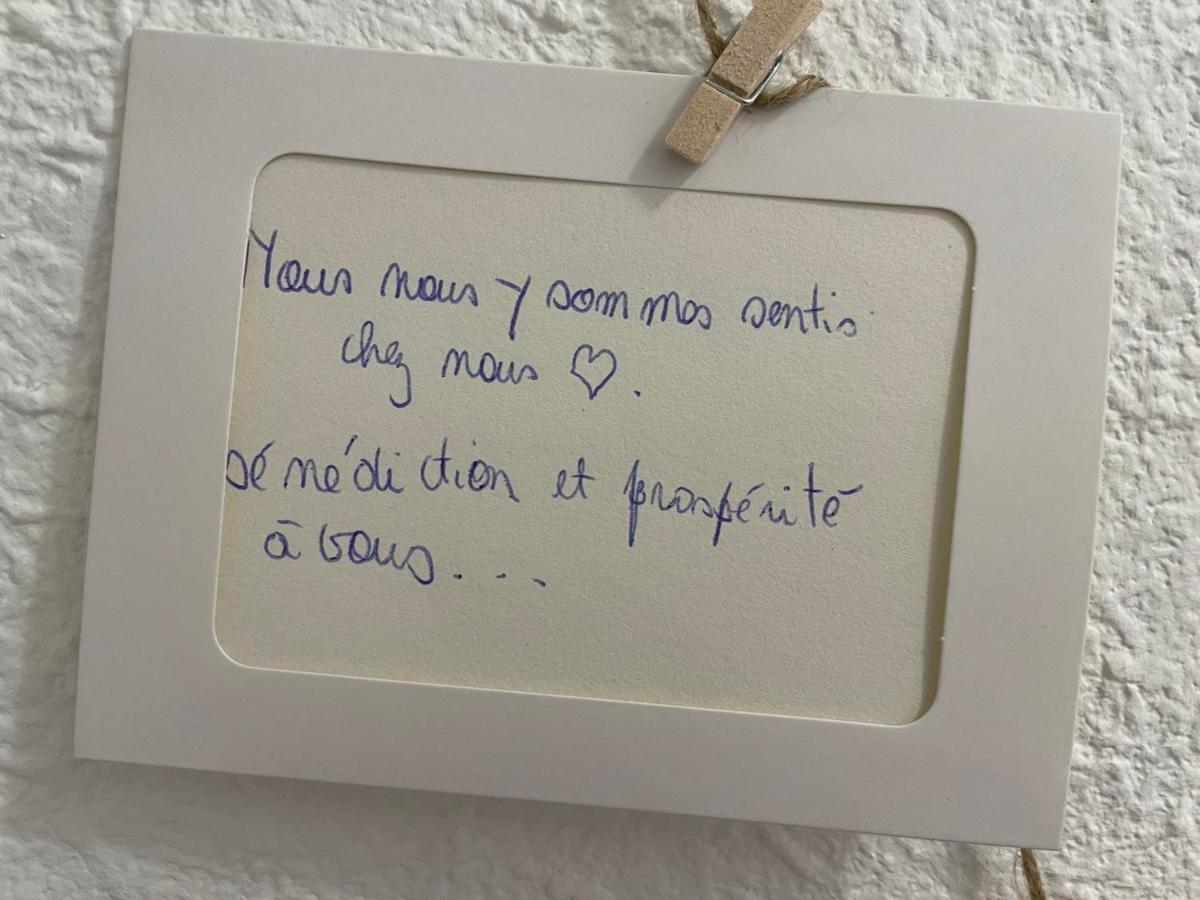 Nous nous y sommes sentis
chez nous ♡.
bénédiction et prospérité
à vous...